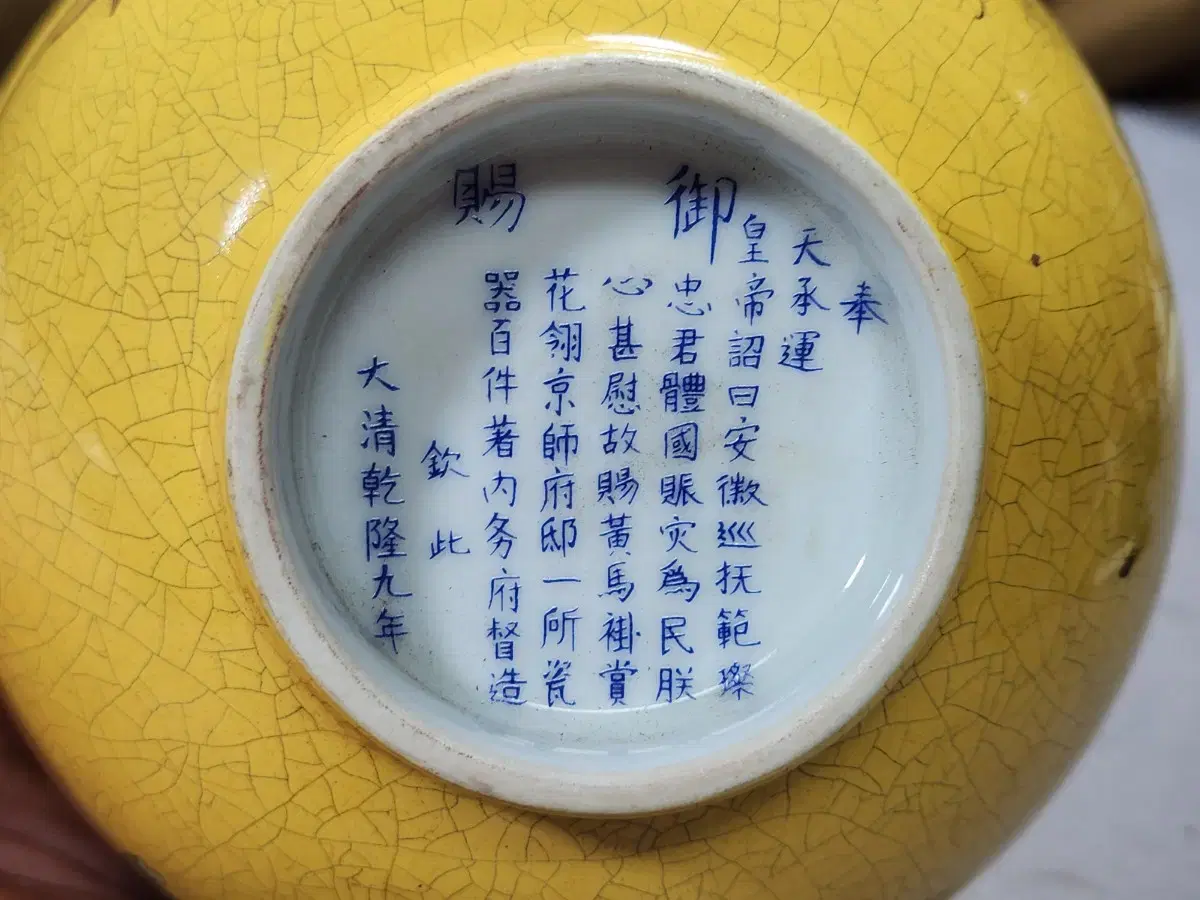 御賜
奉
天承運
皇帝詔曰安徽巡抚範璨
忠君體國賑灾爲民朕
心甚慰故賜黃馬褂賞
花翎京師府邸一所瓷
器百件著内务府督造
欽此
大清乾隆九年